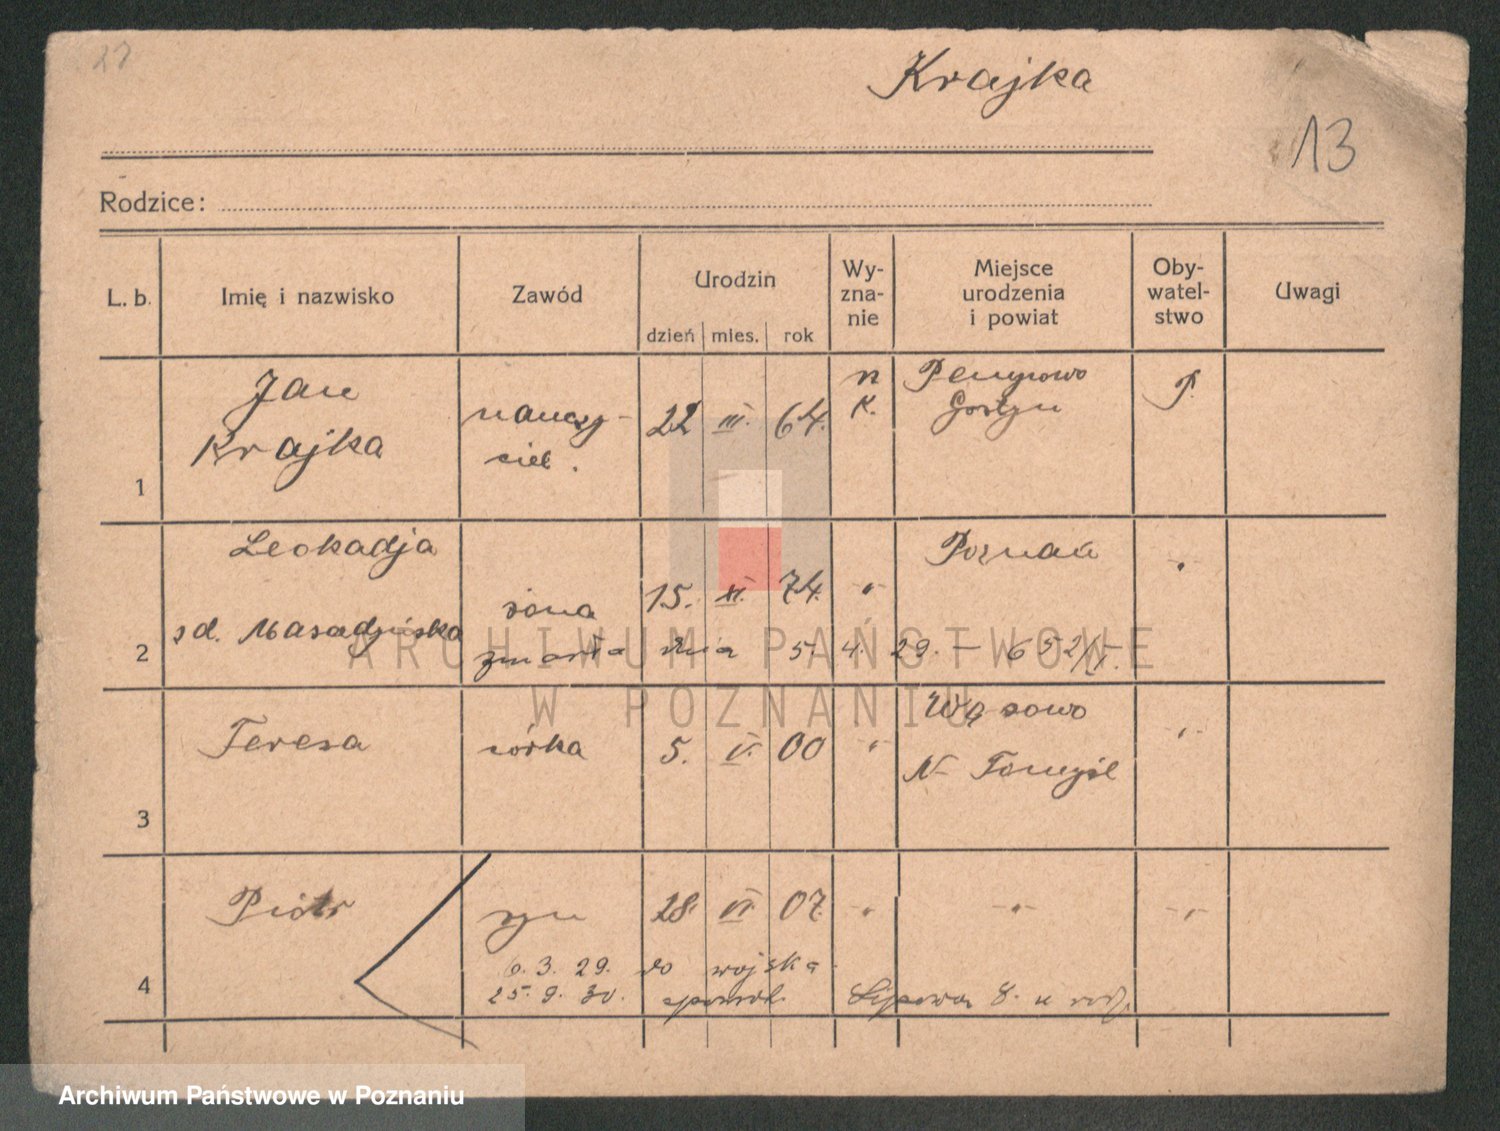 27
Krajka
13
Rodzice:
L. b.
Imię i nazwisko
Zawód
Urodzin
dzień mies. rok
Wy-
zna-
nie
Miejsce
urodzenia
i powiat
Oby-
watel-
stwo
Uwagi
1
Jan
Krajka
nauczy-
ciel.
22 III. 64.
K.
Pempowo
Gostyń
P.
2
Leokadja
żona
15. XI. 74. -"-
Poznań
"
zmarła dnia 5. 4. 29. – 652/I.
3
Teresa
córka
5. V. 00 -"-
Wąsowo
N- Tomyśl
-"-
4
Piotr
syn
28. VI. 07. -"- -"- -"-
6. 3. 29. do wojska
25. 9. 30. Lipowa 8. u
ARCHIWUM PAŃSTWOWE
W POZNANIU
Archiwum Państwowe w Poznaniu